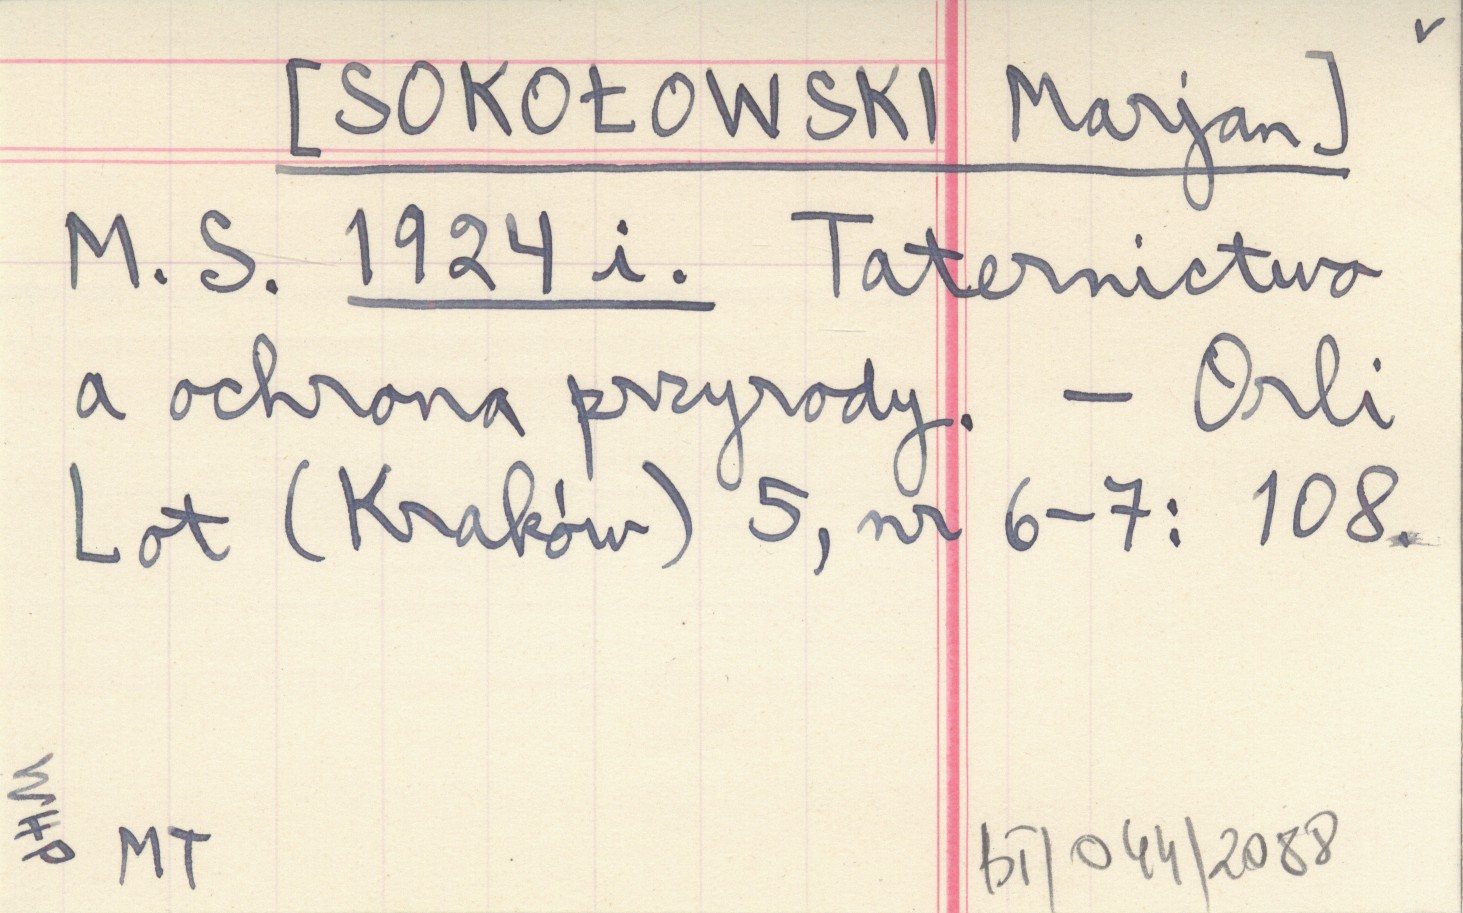 [SOKOŁOWSKI Marjan]
M. S. 1924 i. Taternictwo
a ochrona przyrody. – Orli
Lot (Kraków) 5, nr 6–7: 108.
MT
bT/044/2088